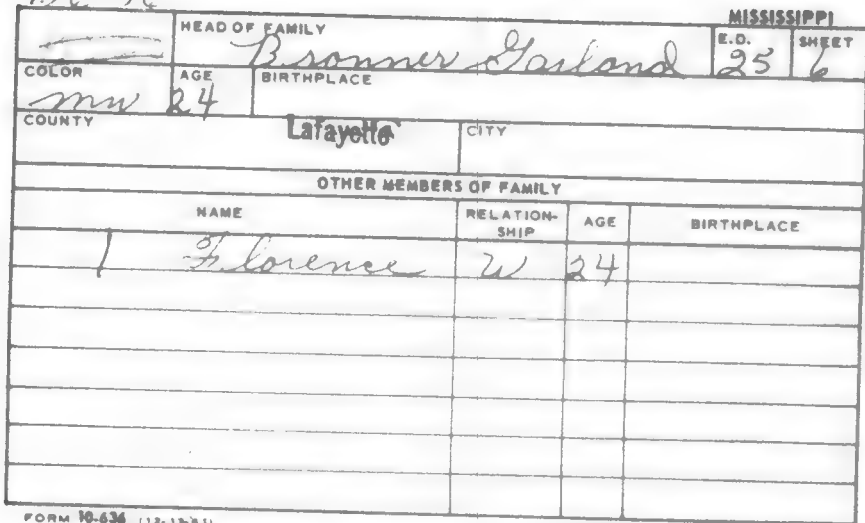 MISSISSIPPI
HEAD OF FAMILY
Bronner Garland
E.D.
25
SHEET
6
COLOR
mw
AGE
24
BIRTHPLACE
COUNTY
Lafayette
CITY
OTHER MEMBERS OF FAMILY
NAME
RELATION-
SHIP
AGE
BIRTHPLACE
1 Florence W 24
FORM 10-636